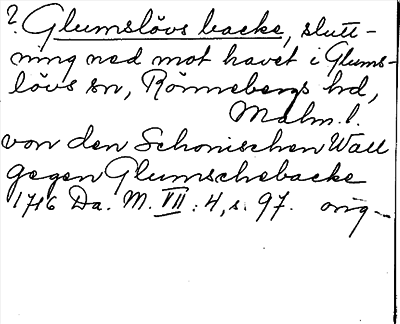 ? Glumslövs backe, slutt-
ning ned mot havet i Glums-
lövs sn, Rönnebergs hd,
Malm. l.
von den Schonischen Wall
gegen Glumschebacke
1716 Da. M. VII: 4, s. 97. orig–